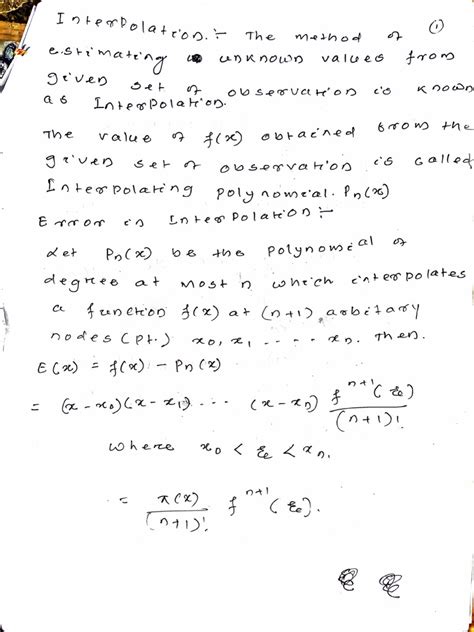 (1)
Interpolation :- The method of
estimating unknown values from
given set of observation is known
as Interpolation.
The value of f(x) obtained from the
given set of observation is called
Interpolating polynomial. Pn(x)
Error in Interpolation :-
Let Pn(x) be the polynomial of
degree at most n which interpolates
a function f(x) at (n+1) arbitary
nodes (pt.) x0, x1 ..... xn. Then.
E(x) = f(x) - Pn(x)
= (x-x0)(x-x1) ... (x-xn) f^{n+1}(ξ) / (n+1)!
where x0 < ξ < xn.
= π(x) / (n+1)! f^{n+1}(ξ).